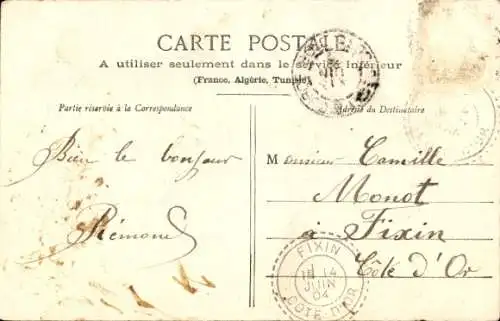 CARTE POSTALE
A utiliser seulement dans le service intérieur
(France, Algérie, Tunisie)
Partie réservée à la Correspondance
Adresse du Destinataire
Bien le bonjour
Rémond
Monsieur Camille
Monot
à Fixin
Côte d'Or
FIXIN
14
JUIN
04
COTE-D'OR